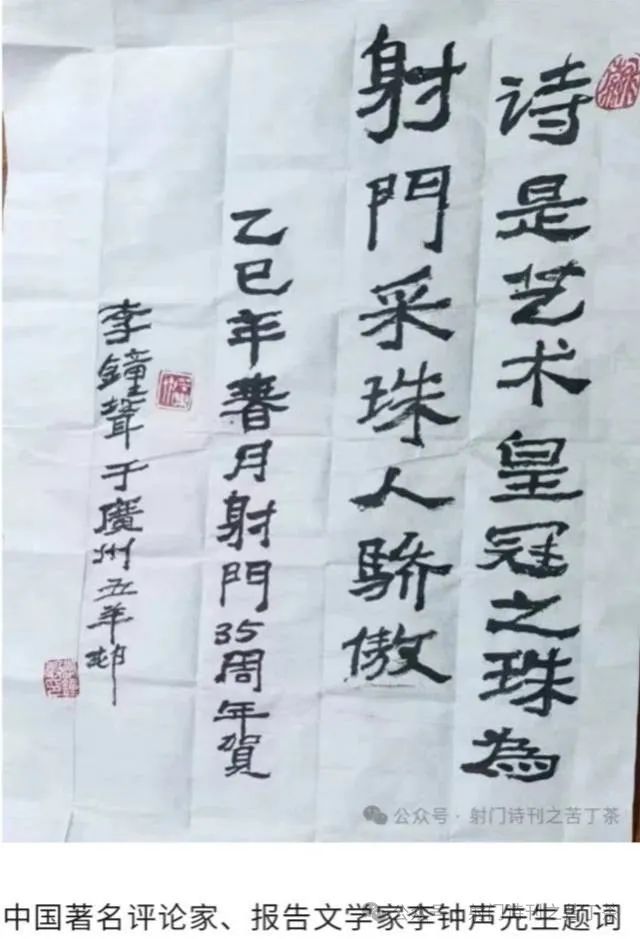 诗是艺术皇冠之珠為
射門采珠人驕傲
乙巳年春月射門35周年賀
李鐘聲于廣州五羊邨
公众号·射门诗刊之苦丁茶
中国著名评论家、报告文学家李钟声先生题词